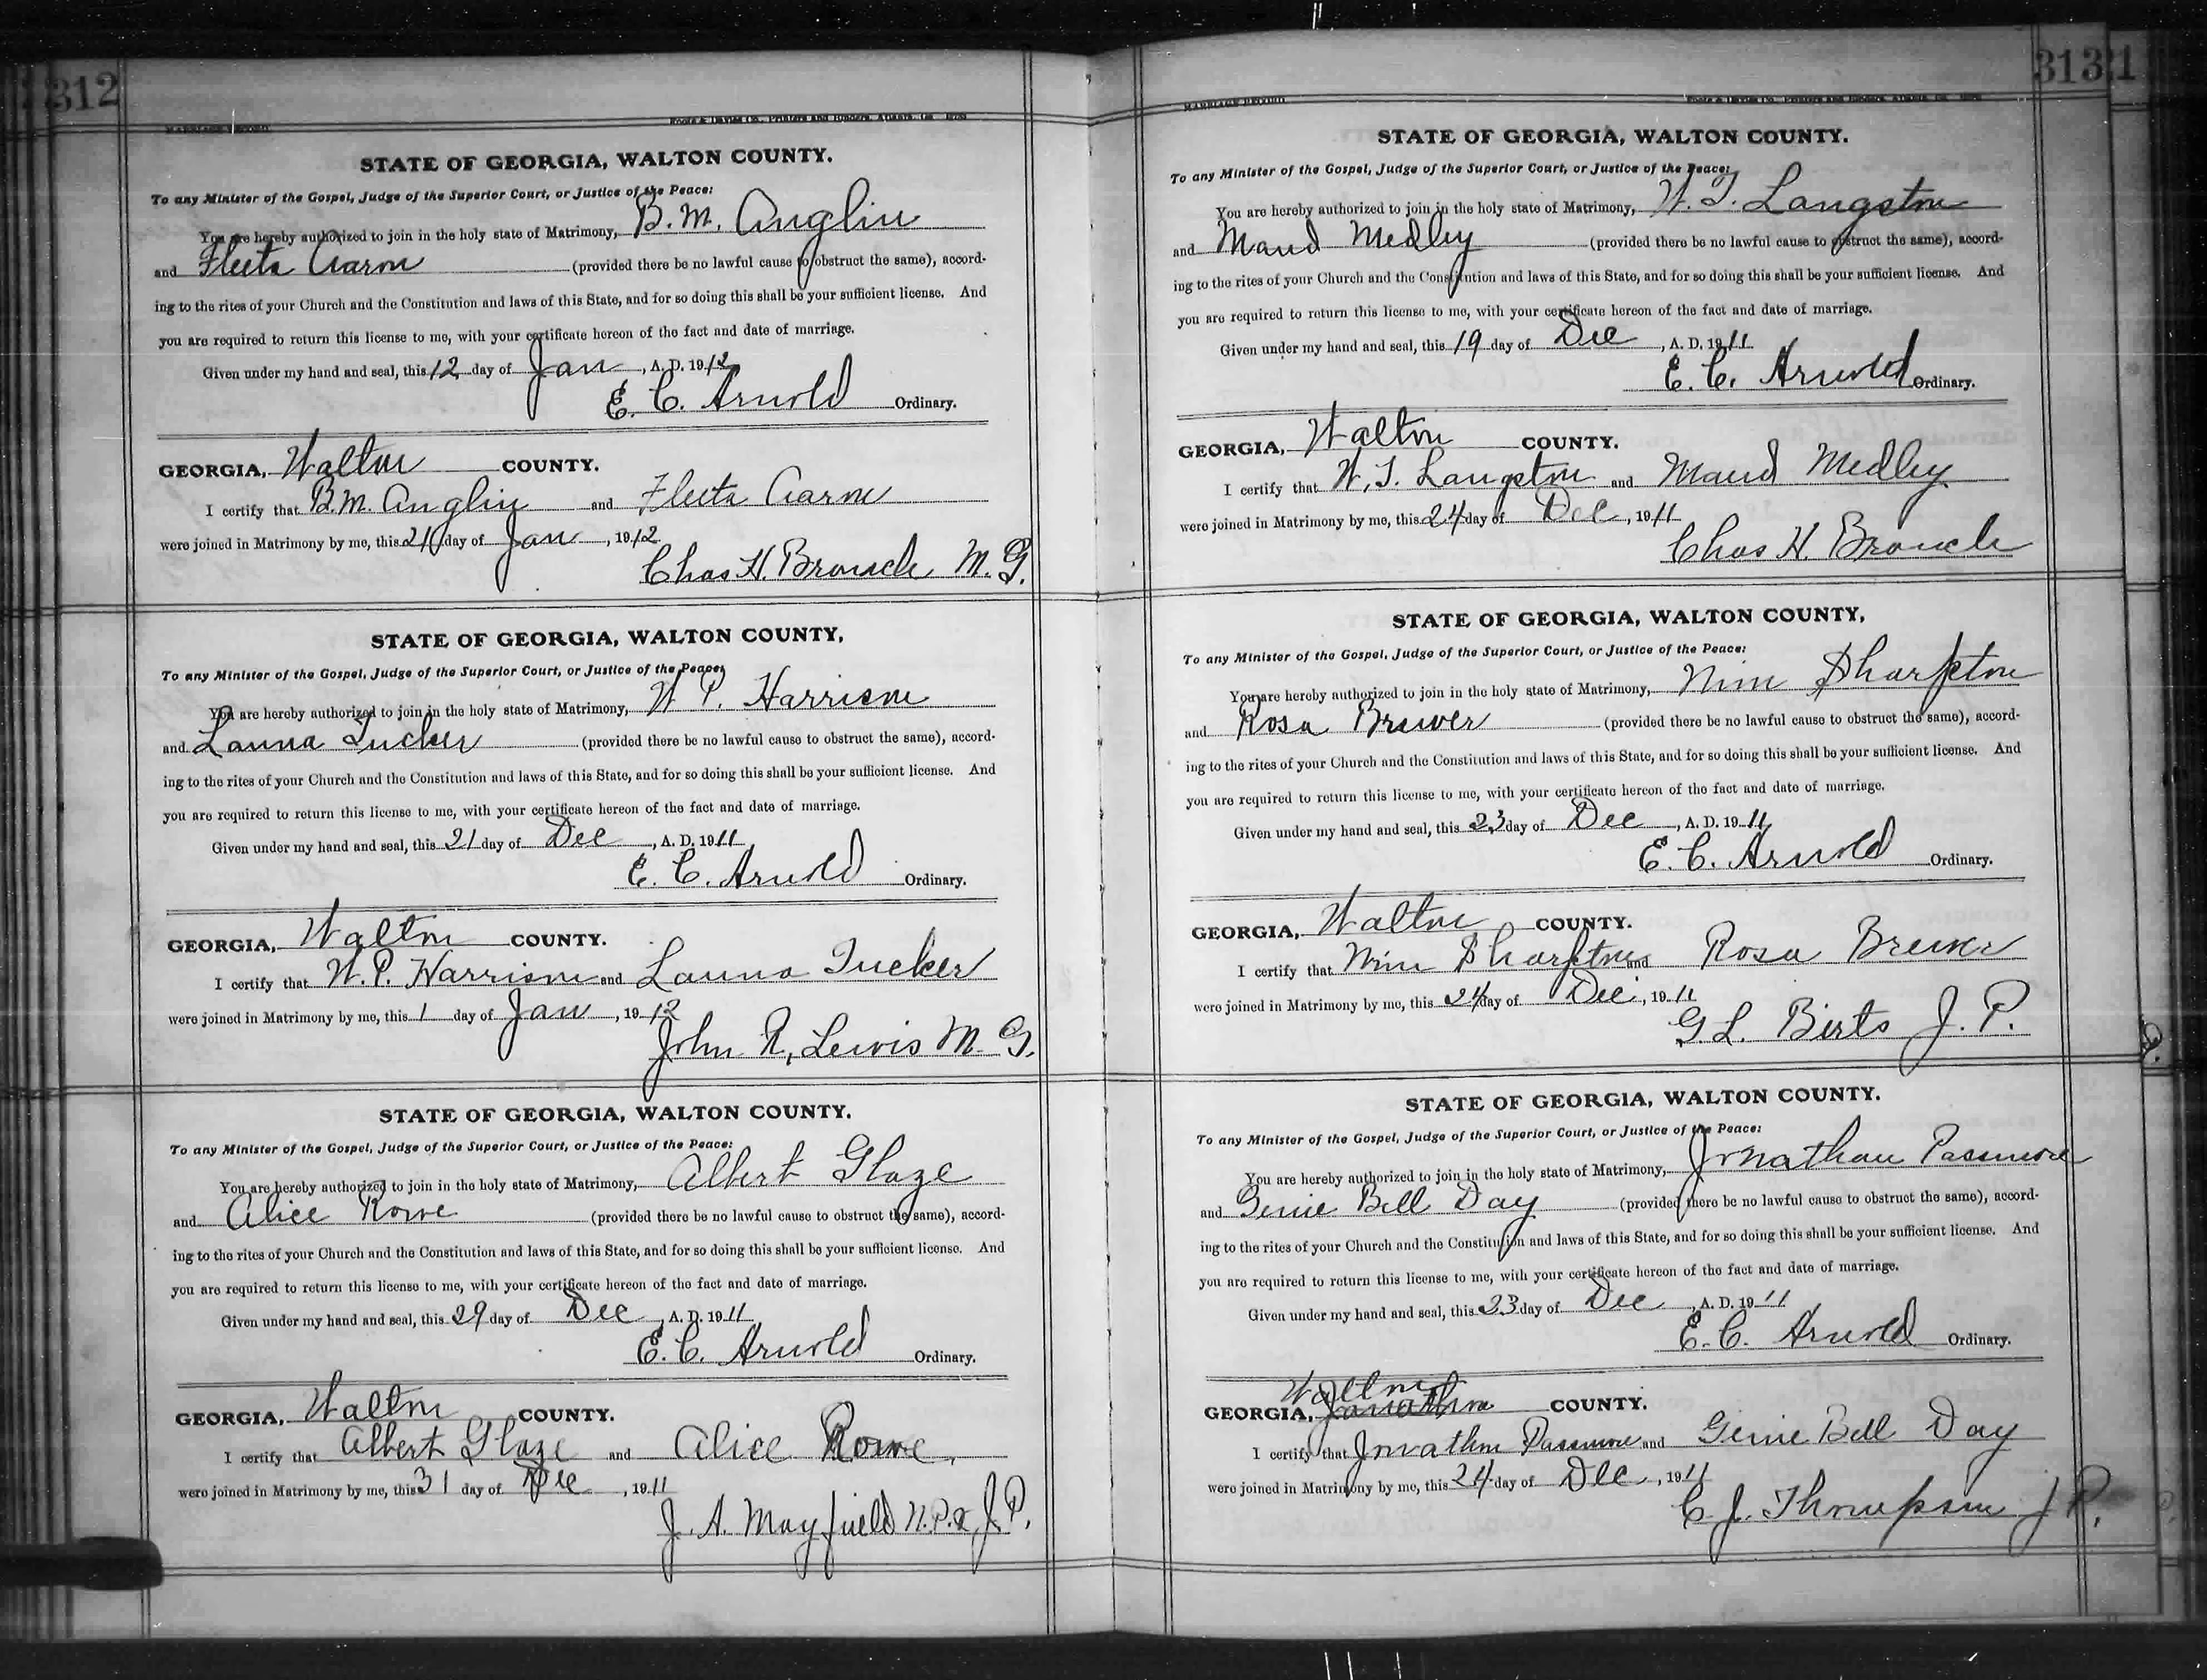 312
MARRIAGE RECORD
Foote & Davies Co., Printers and Binders, Atlanta, Ga.
STATE OF GEORGIA, WALTON COUNTY.
To any Minister of the Gospel, Judge of the Superior Court, or Justice of the Peace:
You are hereby authorized to join in the holy state of Matrimony, B. M. Anglin
and Fleeta Aaron (provided there be no lawful cause to obstruct the same), accord-
ing to the rites of your Church and the Constitution and laws of this State, and for so doing this shall be your sufficient license. And
you are required to return this license to me, with your certificate hereon of the fact and date of marriage.
Given under my hand and seal, this 12 day of Jan, A. D. 1912
E. C. Arnold Ordinary.
GEORGIA, Walton COUNTY.
I certify that B. M. Anglin and Fleeta Aaron
were joined in Matrimony by me, this 21 day of Jan, 1912
Chas H. M. G.
STATE OF GEORGIA, WALTON COUNTY,
To any Minister of the Gospel, Judge of the Superior Court, or Justice of the Peace:
You are hereby authorized to join in the holy state of Matrimony, W P. Harrison
and Launa Tucker (provided there be no lawful cause to obstruct the same), accord-
ing to the rites of your Church and the Constitution and laws of this State, and for so doing this shall be your sufficient license. And
you are required to return this license to me, with your certificate hereon of the fact and date of marriage.
Given under my hand and seal, this 21 day of Dec, A. D. 1911
E. C. Arnold Ordinary.
GEORGIA, Walton COUNTY.
I certify that W. P. Harrison and Launa Tucker
were joined in Matrimony by me, this 1 day of Jan, 1912
John R. Lewis M. G.
STATE OF GEORGIA, WALTON COUNTY.
To any Minister of the Gospel, Judge of the Superior Court, or Justice of the Peace:
You are hereby authorized to join in the holy state of Matrimony, Albert Glaze
and Alice Rowe (provided there be no lawful cause to obstruct the same), accord-
ing to the rites of your Church and the Constitution and laws of this State, and for so doing this shall be your sufficient license. And
you are required to return this license to me, with your certificate hereon of the fact and date of marriage.
Given under my hand and seal, this 29 day of Dec, A. D. 1911
E. C. Arnold Ordinary.
GEORGIA, Walton COUNTY.
I certify that Albert Glaze and Alice Rowe,
were joined in Matrimony by me, this 31 day of Dec, 1911
J. A. Mayfield N. P. & J. P.
313
MARRIAGE RECORD
Foote & Davies Co., Printers and Binders, Atlanta, Ga.
STATE OF GEORGIA, WALTON COUNTY.
To any Minister of the Gospel, Judge of the Superior Court, or Justice of the Peace:
You are hereby authorized to join in the holy state of Matrimony, W. T. Langston
and Maud Medley (provided there be no lawful cause to obstruct the same), accord-
ing to the rites of your Church and the Constitution and laws of this State, and for so doing this shall be your sufficient license. And
you are required to return this license to me, with your certificate hereon of the fact and date of marriage.
Given under my hand and seal, this 19 day of Dec, A. D. 1911
E. C. Arnold Ordinary.
GEORGIA, Walton COUNTY.
I certify that W. T. Langston and Maud Medley
were joined in Matrimony by me, this 24 day of Dec, 1911
Chas H.
STATE OF GEORGIA, WALTON COUNTY,
To any Minister of the Gospel, Judge of the Superior Court, or Justice of the Peace:
You are hereby authorized to join in the holy state of Matrimony, Nim Sharpton
and Rosa Brewer (provided there be no lawful cause to obstruct the same), accord-
ing to the rites of your Church and the Constitution and laws of this State, and for so doing this shall be your sufficient license. And
you are required to return this license to me, with your certificate hereon of the fact and date of marriage.
Given under my hand and seal, this 23 day of Dec, A. D. 1911
E. C. Arnold Ordinary.
GEORGIA, Walton COUNTY.
I certify that Nim Sharpton and Rosa Brewer
were joined in Matrimony by me, this 24 day of Dec, 1911
G. L. Birts J. P.
STATE OF GEORGIA, WALTON COUNTY.
To any Minister of the Gospel, Judge of the Superior Court, or Justice of the Peace:
You are hereby authorized to join in the holy state of Matrimony, Jonathan Passmore
and Genie Bell Day (provided there be no lawful cause to obstruct the same), accord-
ing to the rites of your Church and the Constitution and laws of this State, and for so doing this shall be your sufficient license. And
you are required to return this license to me, with your certificate hereon of the fact and date of marriage.
Given under my hand and seal, this 23 day of Dec, A. D. 1911
E. C. Arnold Ordinary.
GEORGIA, Walton COUNTY.
I certify that Jonathan Passmore and Genie Bell Day
were joined in Matrimony by me, this 24 day of Dec, 1911
C. J. Thompson J P.